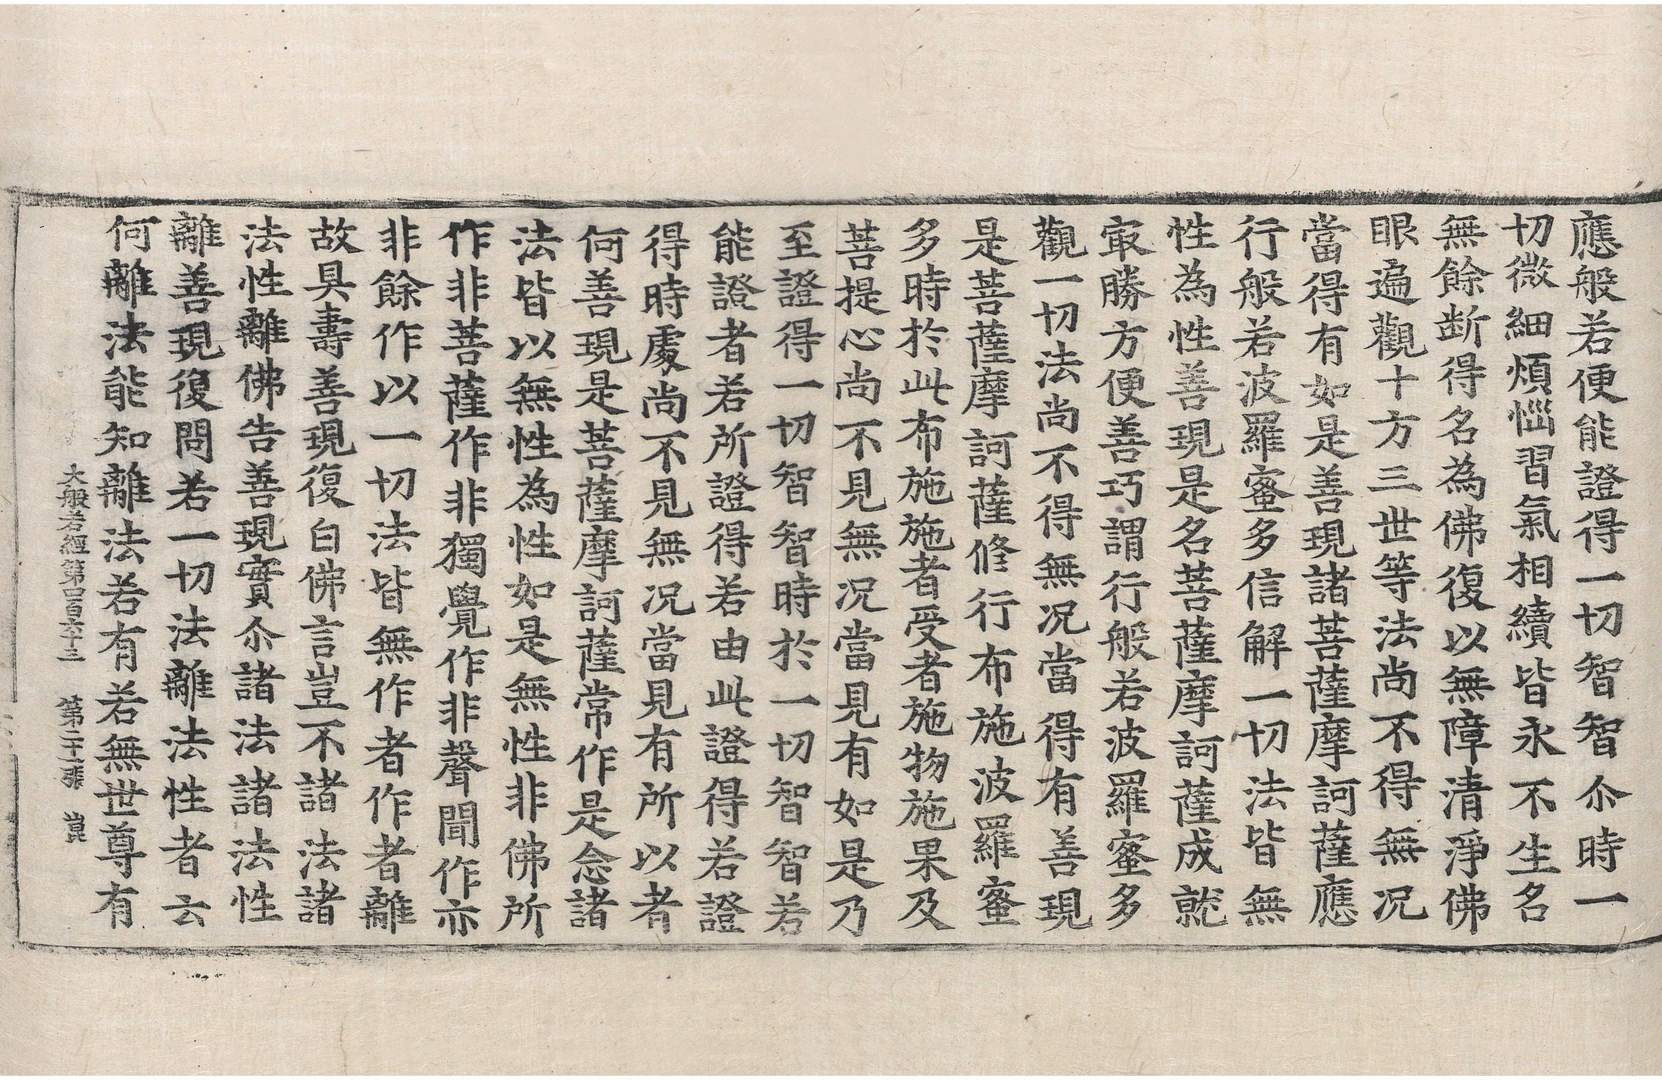 應般若便能證得一切智智尒時一
切微細煩惱習氣相續皆永不生名
無餘斷得名為佛復以無障清淨佛
眼遍觀十方三世等法尚不得無况
當得有如是善現諸菩薩摩訶薩應
行般若波羅蜜多信解一切法皆無
性為性善現是名菩薩摩訶薩成就
㝡勝方便善巧謂行般若波羅蜜多
觀一切法尚不得無况當得有善現
是菩薩摩訶薩修行布施波羅蜜
多時於此布施施者受者施物施果及
菩提心尚不見無况當見有如是乃
至證得一切智智時於一切智智若
能證者若所證得若由此證得若證
得時處尚不見無况當見有所以者
何善現是菩薩摩訶薩常作是念諸
法皆以無性為性如是無性非佛所
作非菩薩作非獨覺作非聲聞作亦
非餘作以一切法皆無作者作者離
故具壽善現復白佛言豈不諸法諸
法性離佛告善現實尒諸法諸法性
離善現復問若一切法離法性者云
何離法能知離法若有若無世尊有
大般若經第四百六十三 第二十二張 崑